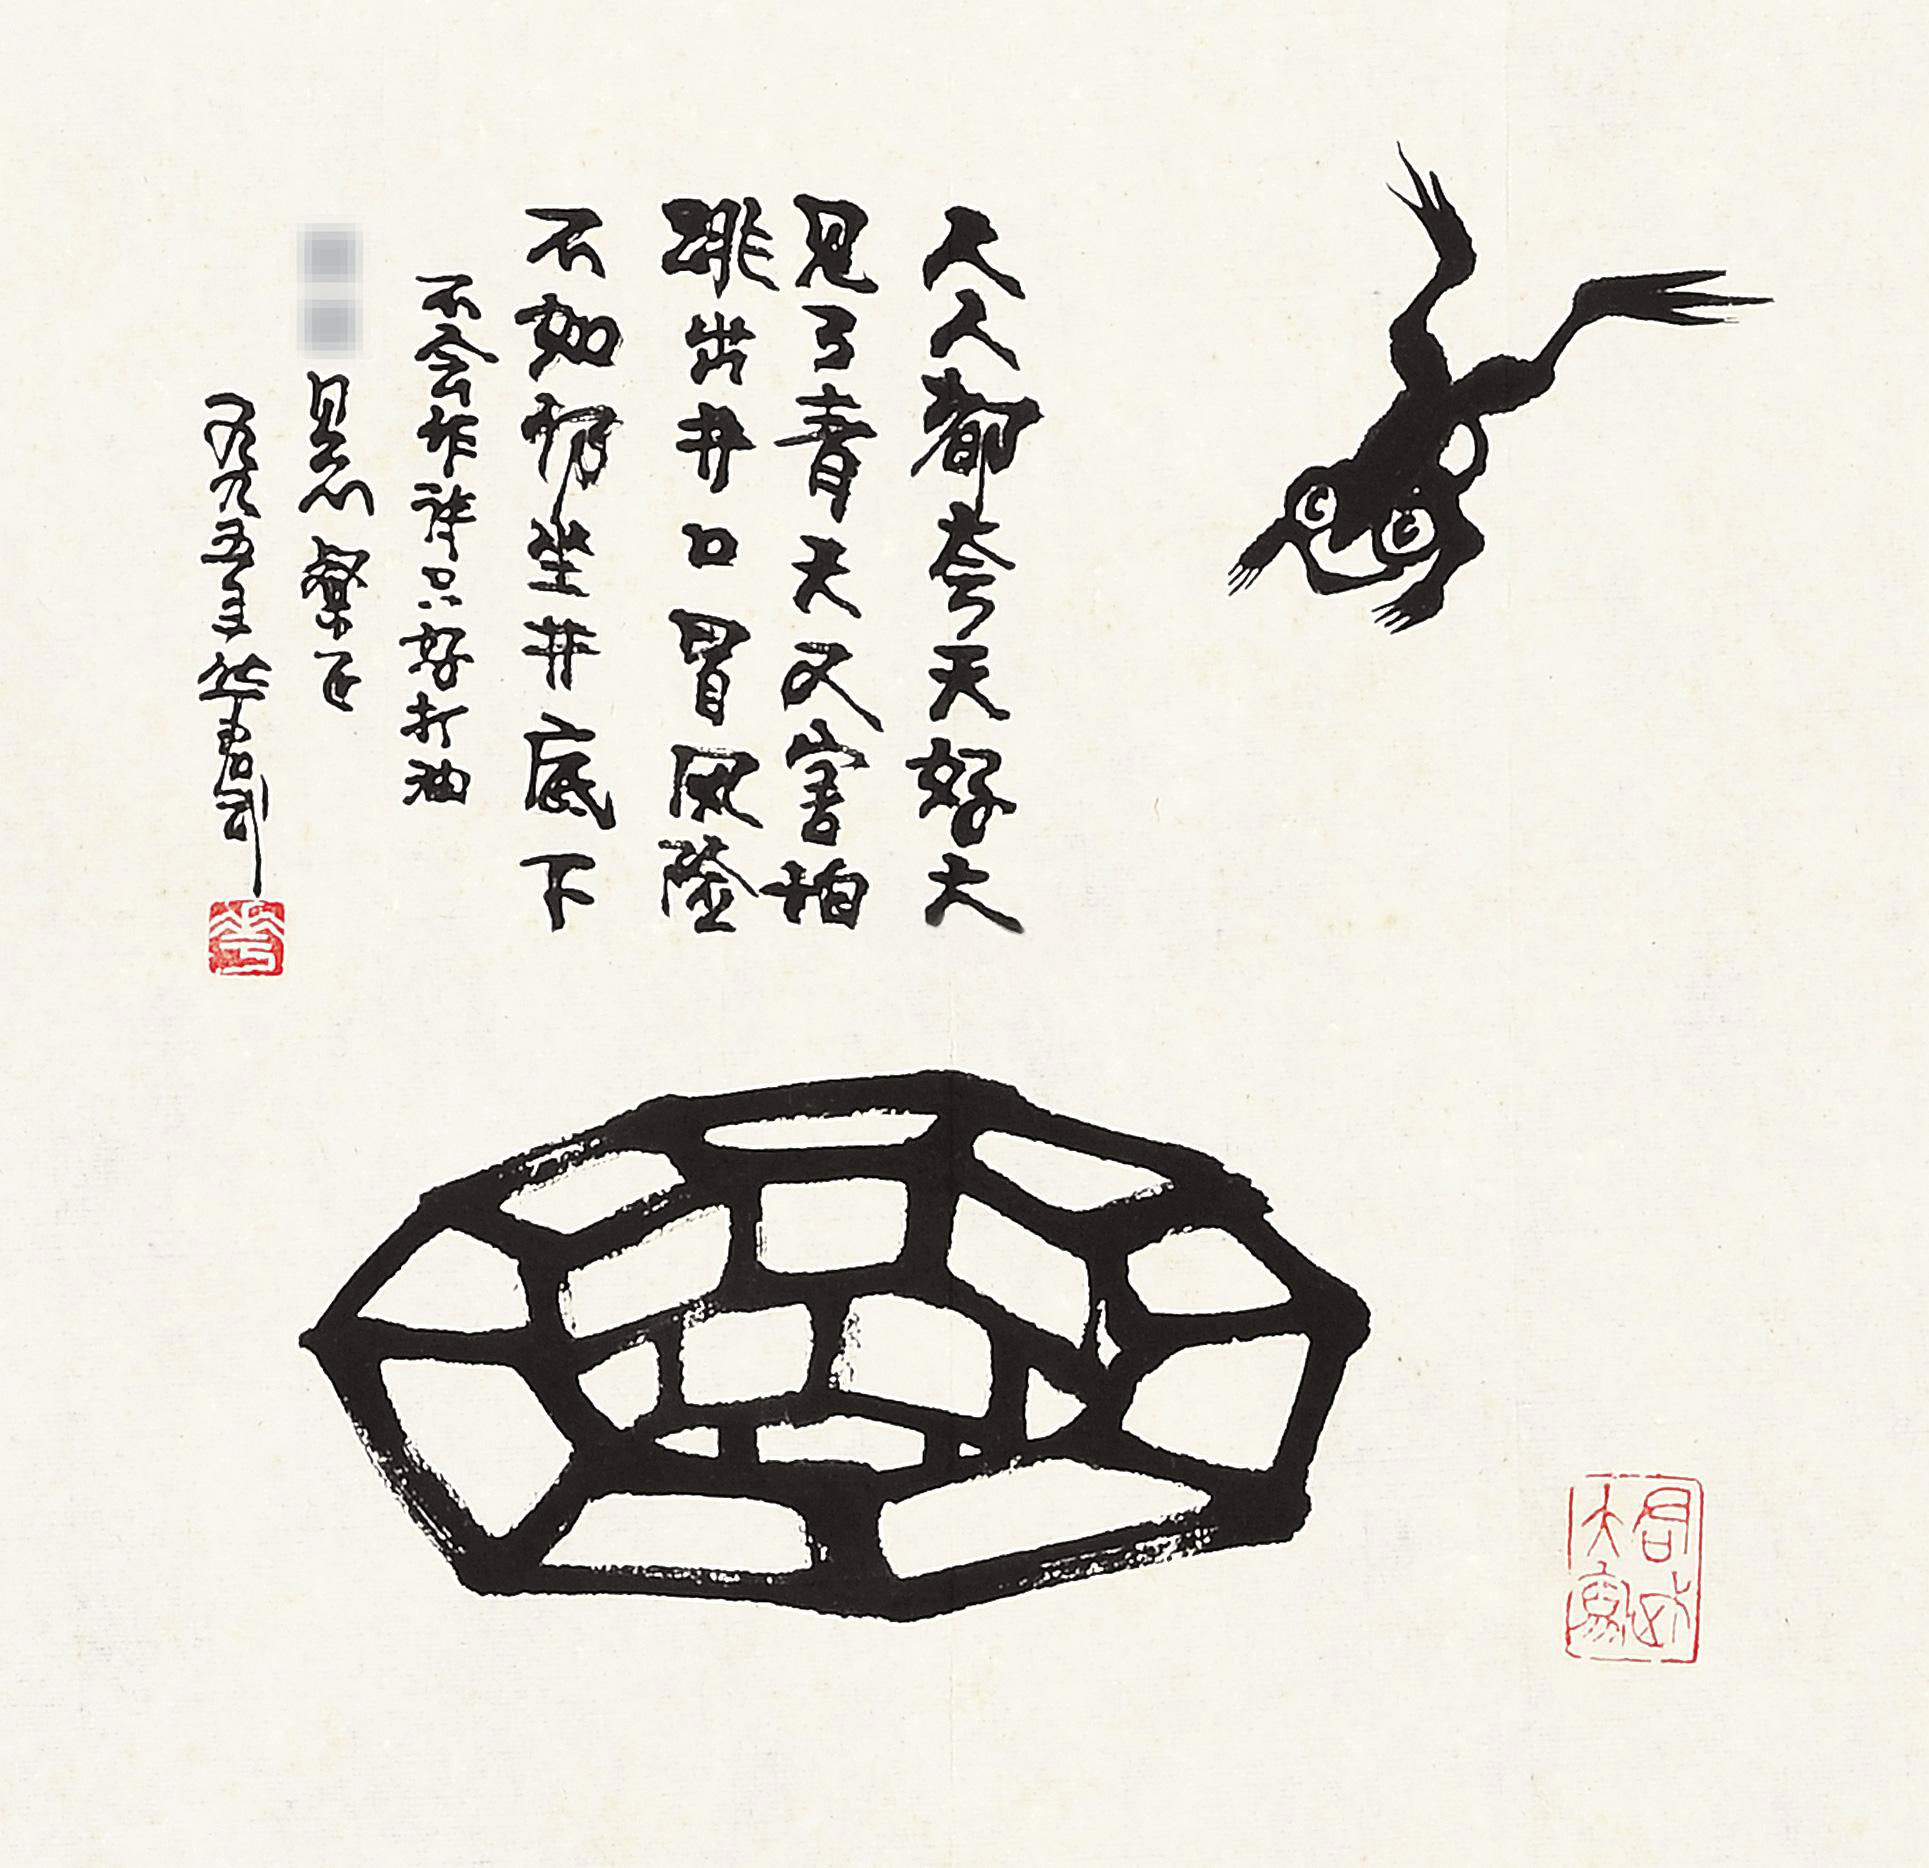 人人都夸天好大
见了青天又害怕
跳出井口冒风险
不如仍坐井底下
不会作诗只好打油
粲正
一九九五年华君武
華
君武